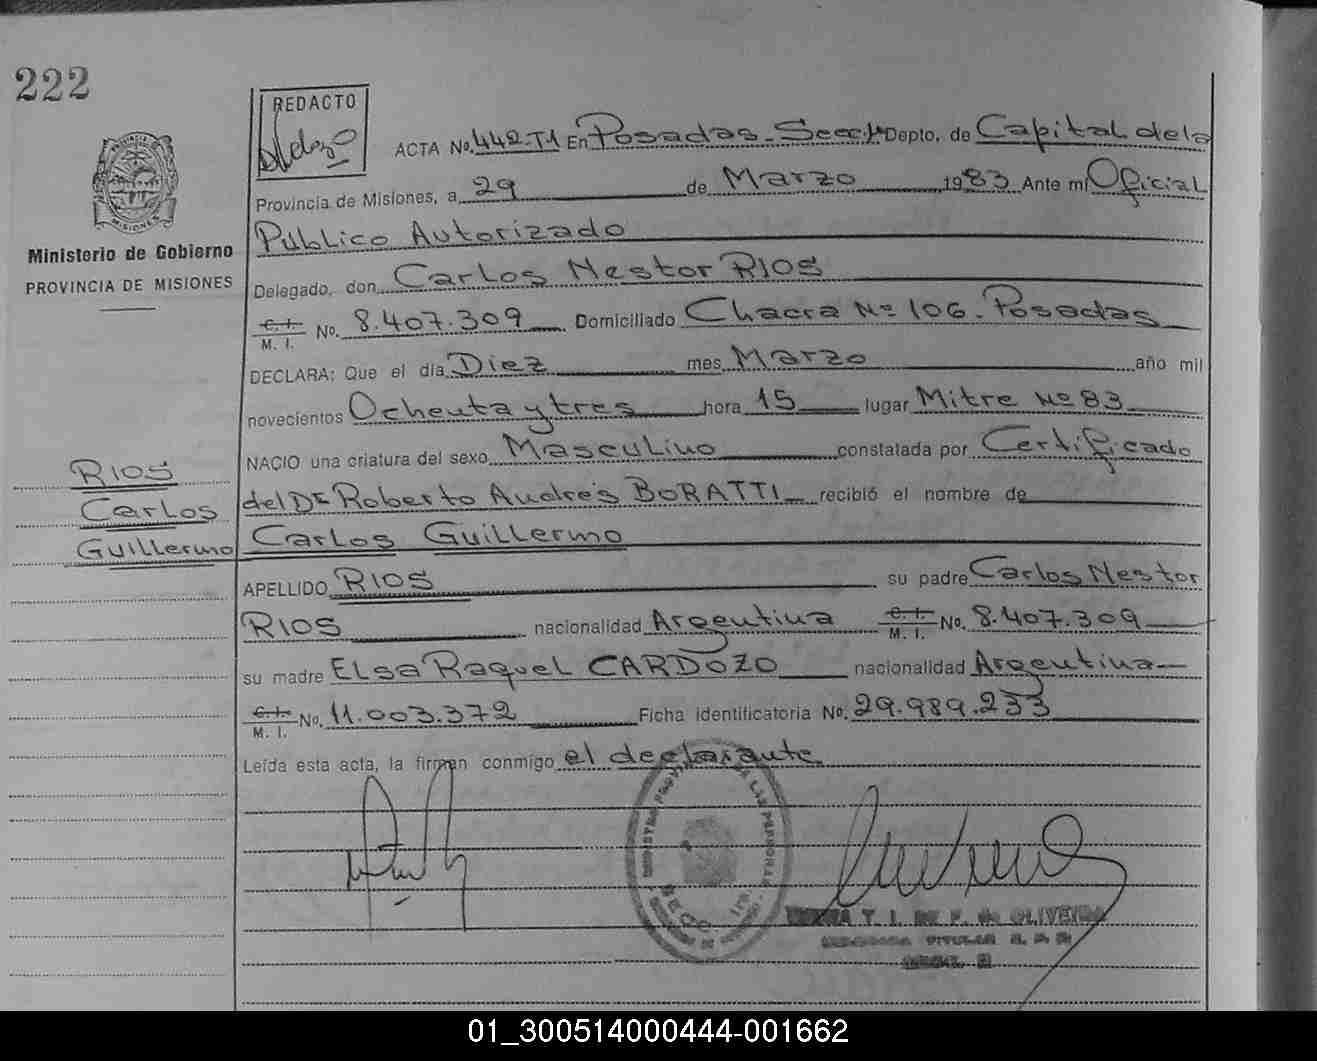 222
REDACTO
ACTA No. 442-T1 En Posadas-Secc. 1ª Depto. de Capital de la
Provincia de Misiones, a 29 de Marzo 1983 Ante mí Oficial
Público Autorizado
PROVINCIA DE
MISIONES
Ministerio de Gobierno
PROVINCIA DE MISIONES
Delegado, don Carlos Nestor RIOS
C. I. No. 8.407.309 Domiciliado Chacra Nº 106. Posadas
M. I.
DECLARA: Que el día Diez mes Marzo año mil
novecientos Ochenta y tres hora 15 lugar Mitre Nº 83
NACIO una criatura del sexo Masculino constatada por Certificado
del Dr Roberto Andrés BORATTI recibió el nombre de
Carlos Guillermo
RIOS
Carlos
Guillermo
APELLIDO RIOS su padre Carlos Nestor
RIOS nacionalidad Argentina C. I. No. 8.407.309
M. I.
su madre ELsa Raquel CARDOZO nacionalidad Argentina
C. I. No. 11.003.372 Ficha identificatoria No. 29.989.233
M. I.
Leída esta acta, la firman conmigo el declarante
T. I. DE F. de OLIVEIRA
TITULAR
01_300514000444-001662